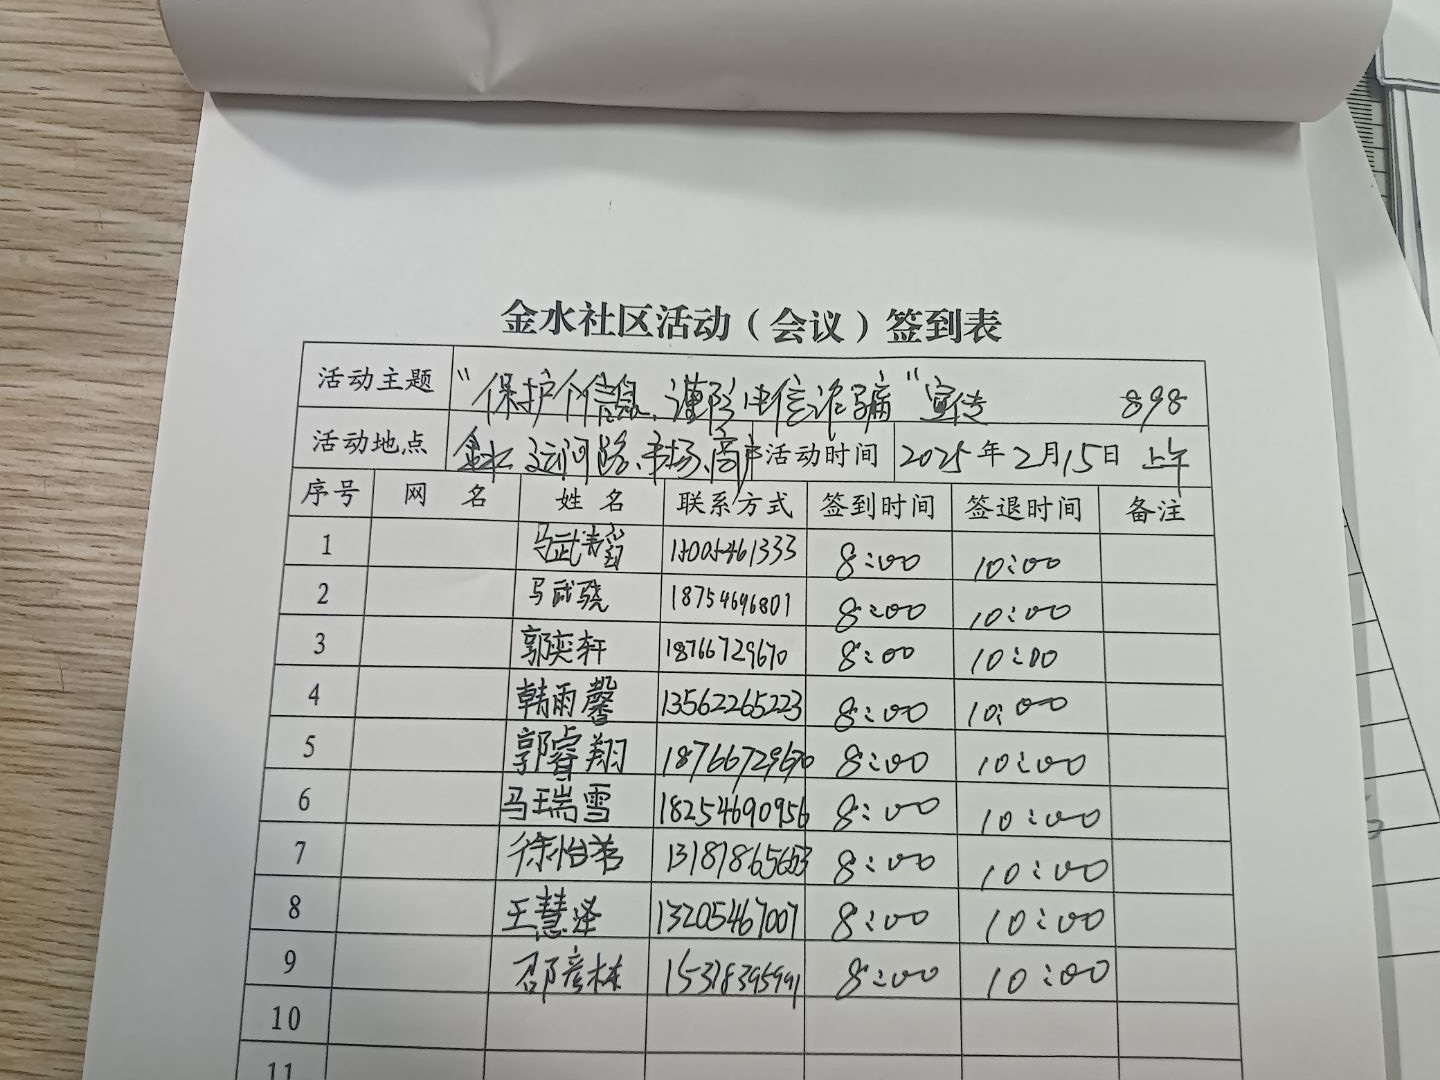 金水社区活动（会议）签到表
活动主题 "保护个信息、谨防电信诈骗"宣传 898
活动地点 金水运河路、市场、商户 活动时间 2025年2月15日 上午
序号 网 名 姓 名 联系方式 签到时间 签退时间 备注
1 马武 15005461333 8:00 10:00
2 马武骁 18754696801 8:00 10:00
3 郭奕轩 18766729670 8:00 10:00
4 韩雨馨 13562265223 8:00 10:00
5 郭睿翔 18766729670 8:00 10:00
6 马瑞雪 18254690956 8:00 10:00
7 徐怡 13181865653 8:00 10:00
8 王慧泽 13205467007 8:00 10:00
9 邵彦林 15318395991 8:00 10:00
10
11